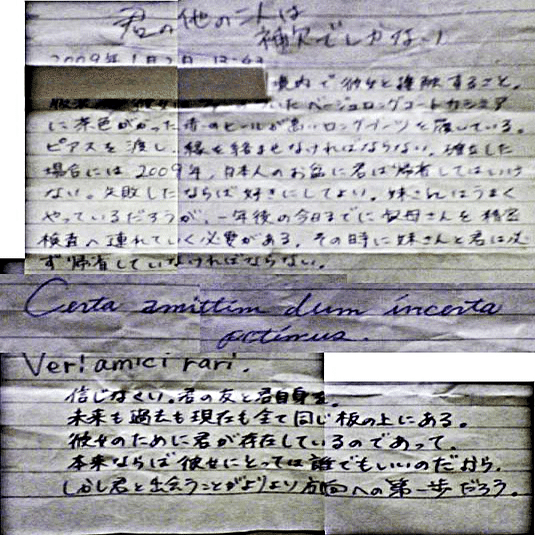 君の他の二人は
補欠でしかない
2009年1月2日 13:43
境内で彼女と接触すること。
いたベージュロングコートカシミア
に茶色がかった赤のヒールが高いロングブーツを履いている。
ピアスを渡し、縁を結ばせなければならない。確立した
場合には2009年、日本人のお盆に君は帰省してはいけ
ない。失敗したならば好きにしてよい。妹さんはうまく
やっているだろうが、一年後の今日までに叔母さんを精密
検査へ連れていく必要がある。その時に妹さんと君は必
ず帰省していなければならない。
Certa amittim dum incerta
petimus.
Veri amici rari.
信じなくい。君の友と君自身を。
未来も過去も現在も全て同じ板の上にある。
彼女のために君が存在しているのであって、
本来ならば彼女にとっては誰でもいいのだから。
しかし君と出会うことがよりより方向への第一歩だろう。